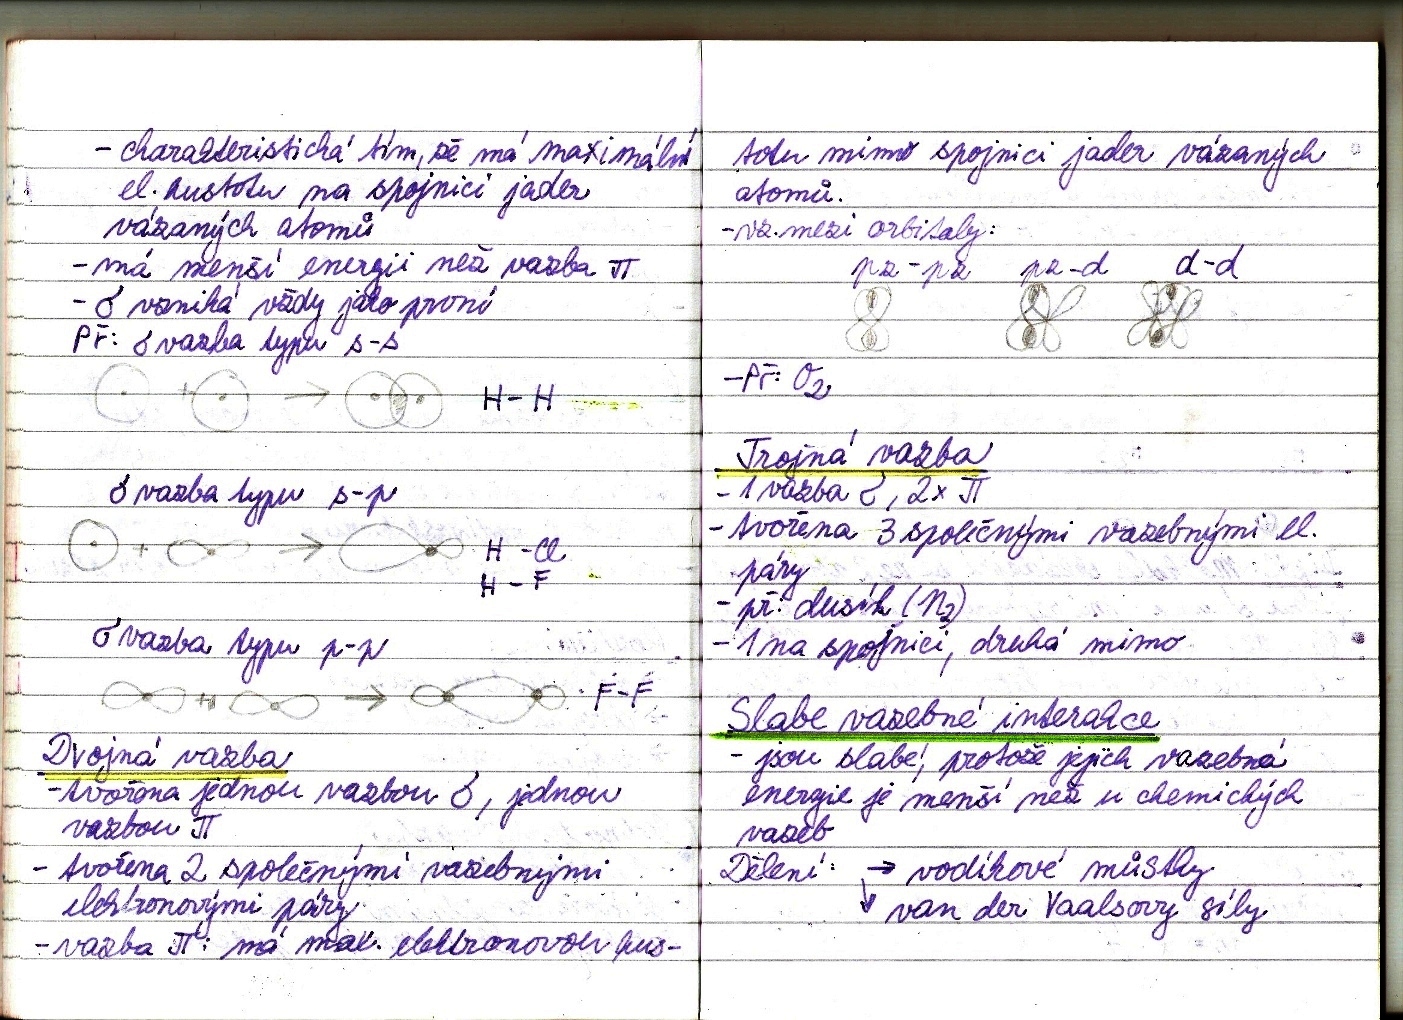 - charakteristická tím, že má maximální
el. hustotu na spojnici jader
vázaných atomů
- má menší energii než vazba π
- σ vzniká vždy jako první
PŘ: σ vazba typu s-s
+ → H - H
σ vazba typu s-p
+ → H - Cl
H - F
σ vazba typu p-p
+ → F-F
Dvojná vazba
- tvořena jednou vazbou σ, jednou
vazbou π
- tvořena 2 společnými vazebnými
elektronovými páry
- vazba π: má max. elektronovou hus-
totu mimo spojnici jader vázaných
atomů.
- vz. mezi orbitaly:
pz - pz pz - d d - d
- Př: O2
Trojná vazba
- 1 vazba σ, 2x π
- tvořena 3 společnými vazebnými el.
páry
- př: dusík (N2)
- 1 na spojnici, druhá mimo
Slabé vazebné interakce
- jsou slabé, protože jejich vazebná
energie je menší než u chemických
vazeb
Dělení: → vodíkové můstky
↓ van der Vaalsovy síly